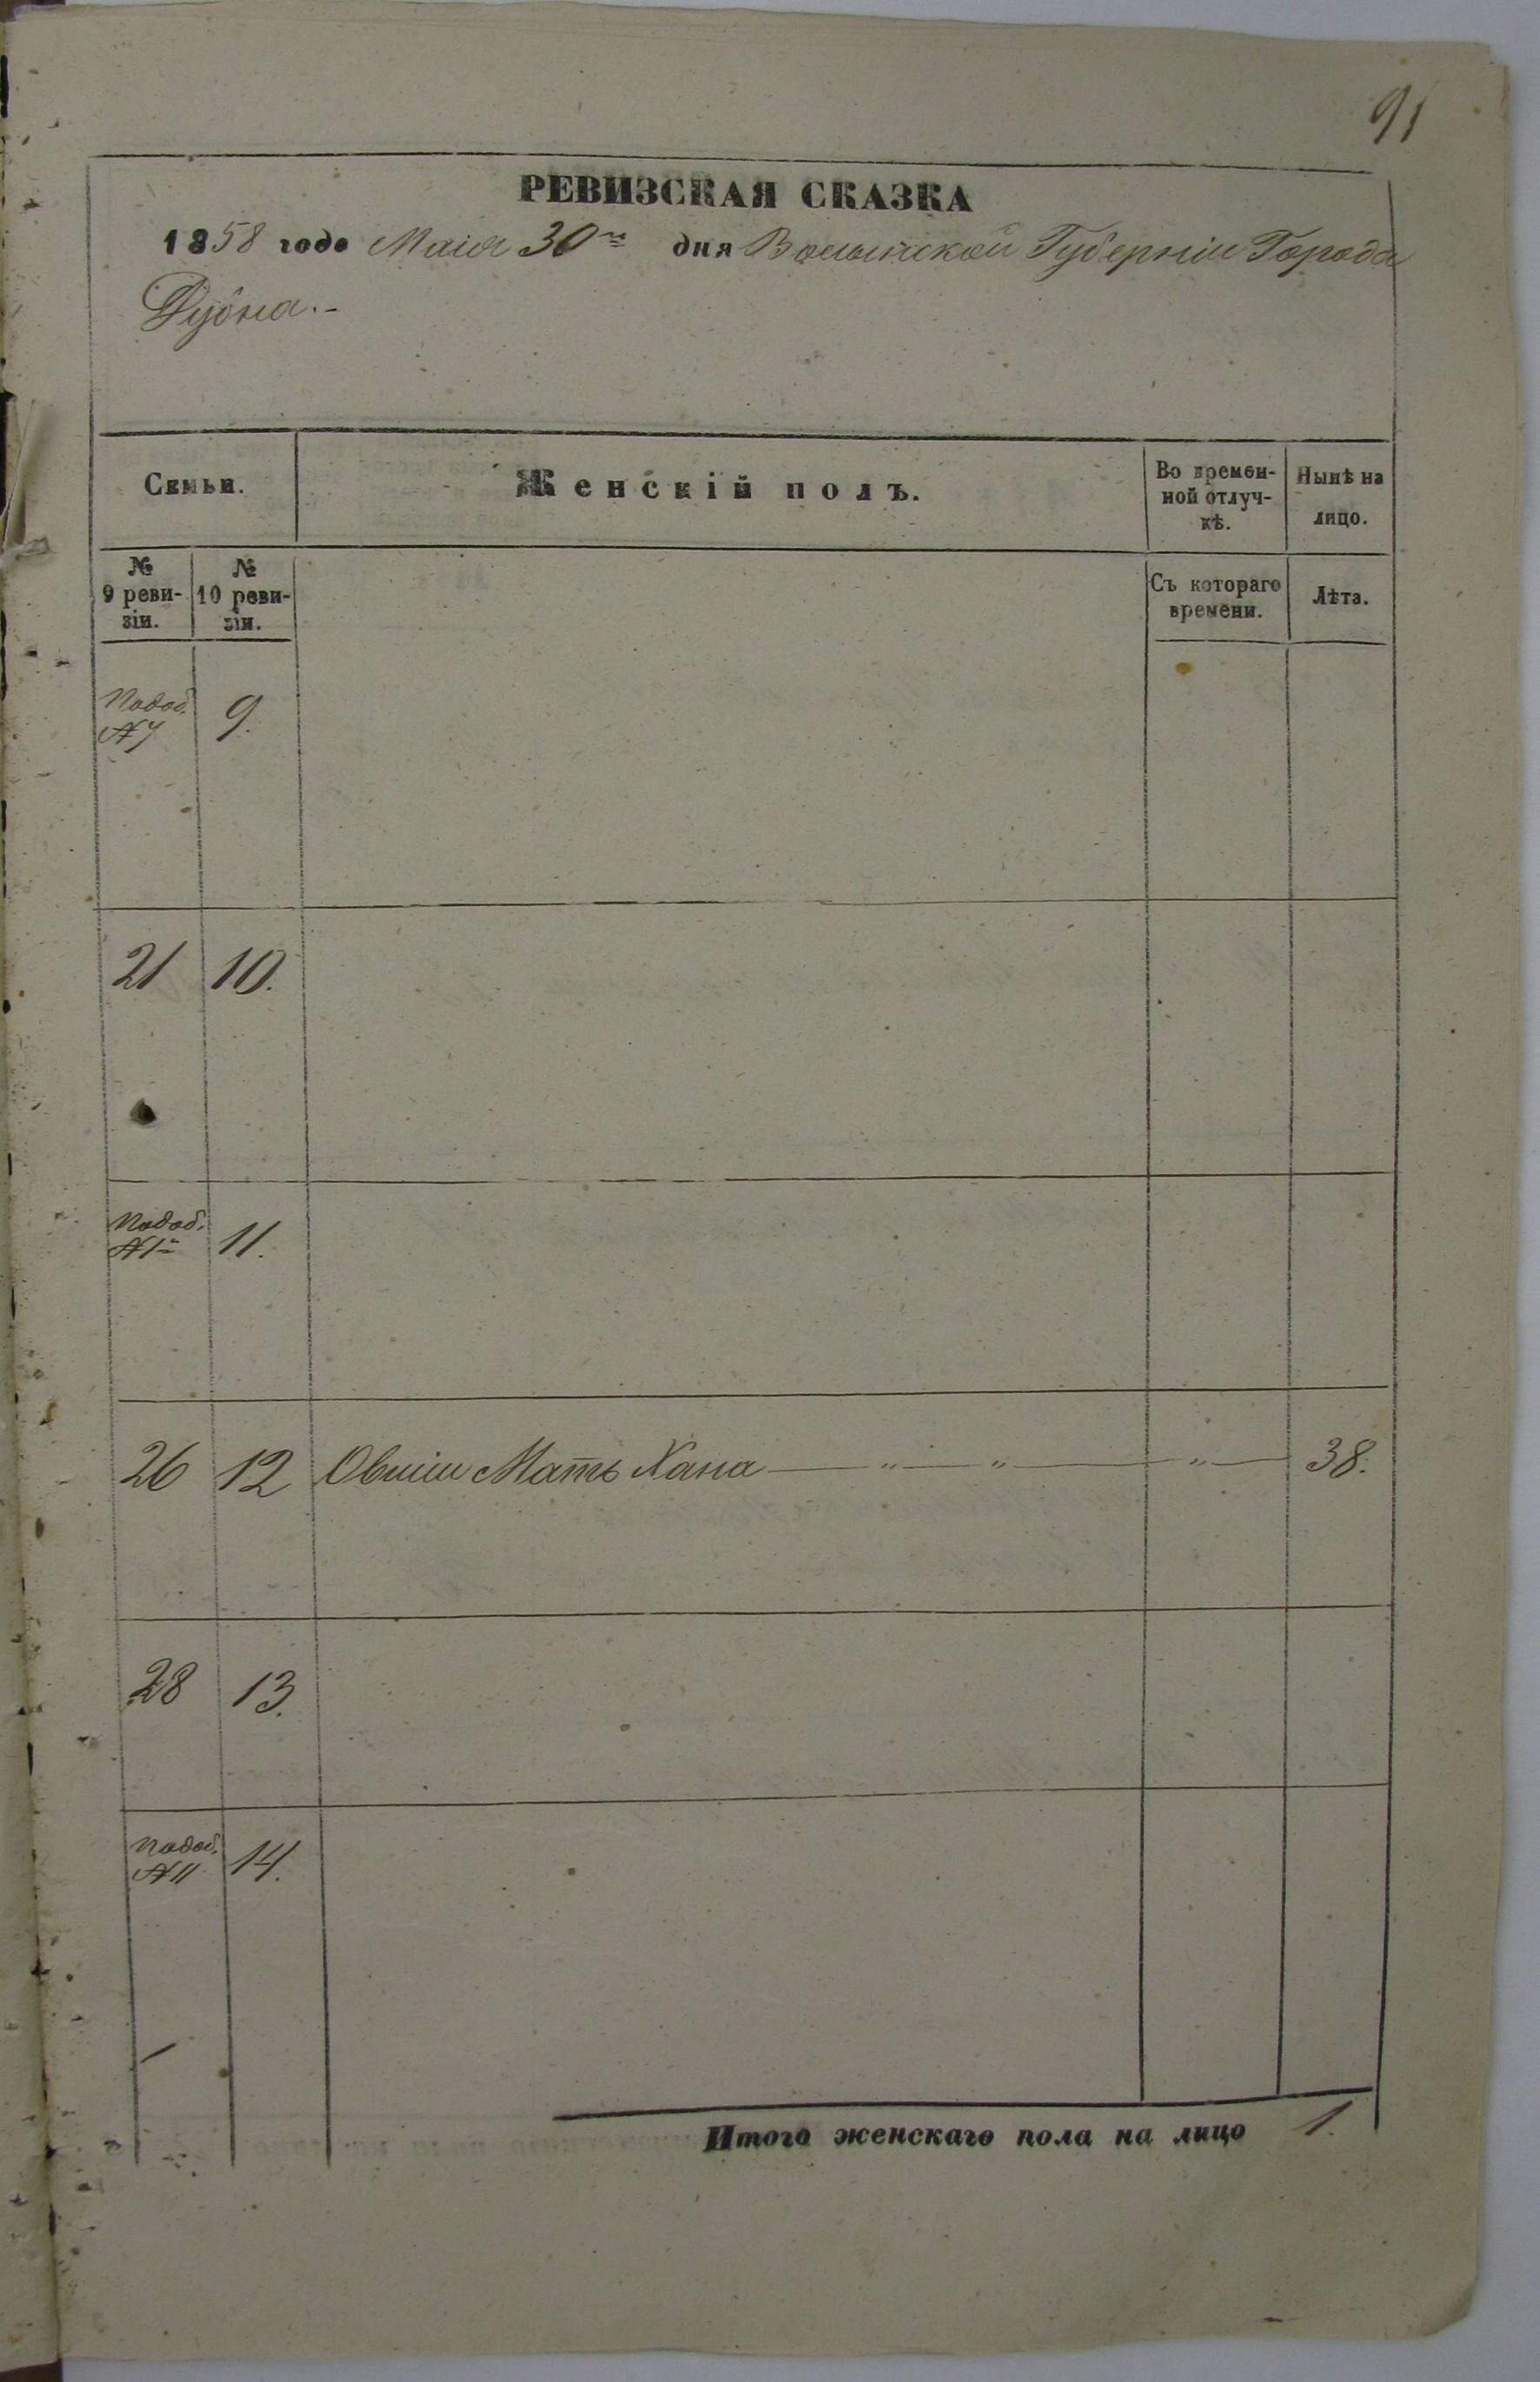 91
РЕВИЗСКАЯ СКАЗКА
1858 года Маія 30го дня Волынской Губерніи Города
Дубна.-
Семьи.
Женскій полъ.
Во времен-
ной отлуч-
кѣ.
Нынѣ на
лицо.
№
9 реви-
зіи.
№
10 реви-
зіи.
Съ котораго
времени.
Лѣта.
№7 9.
21 10.
11.
26 12 Мать Хана — " — " — " — 38.
28 13.
№11 14.
Итого женскаго пола на лицо 1.